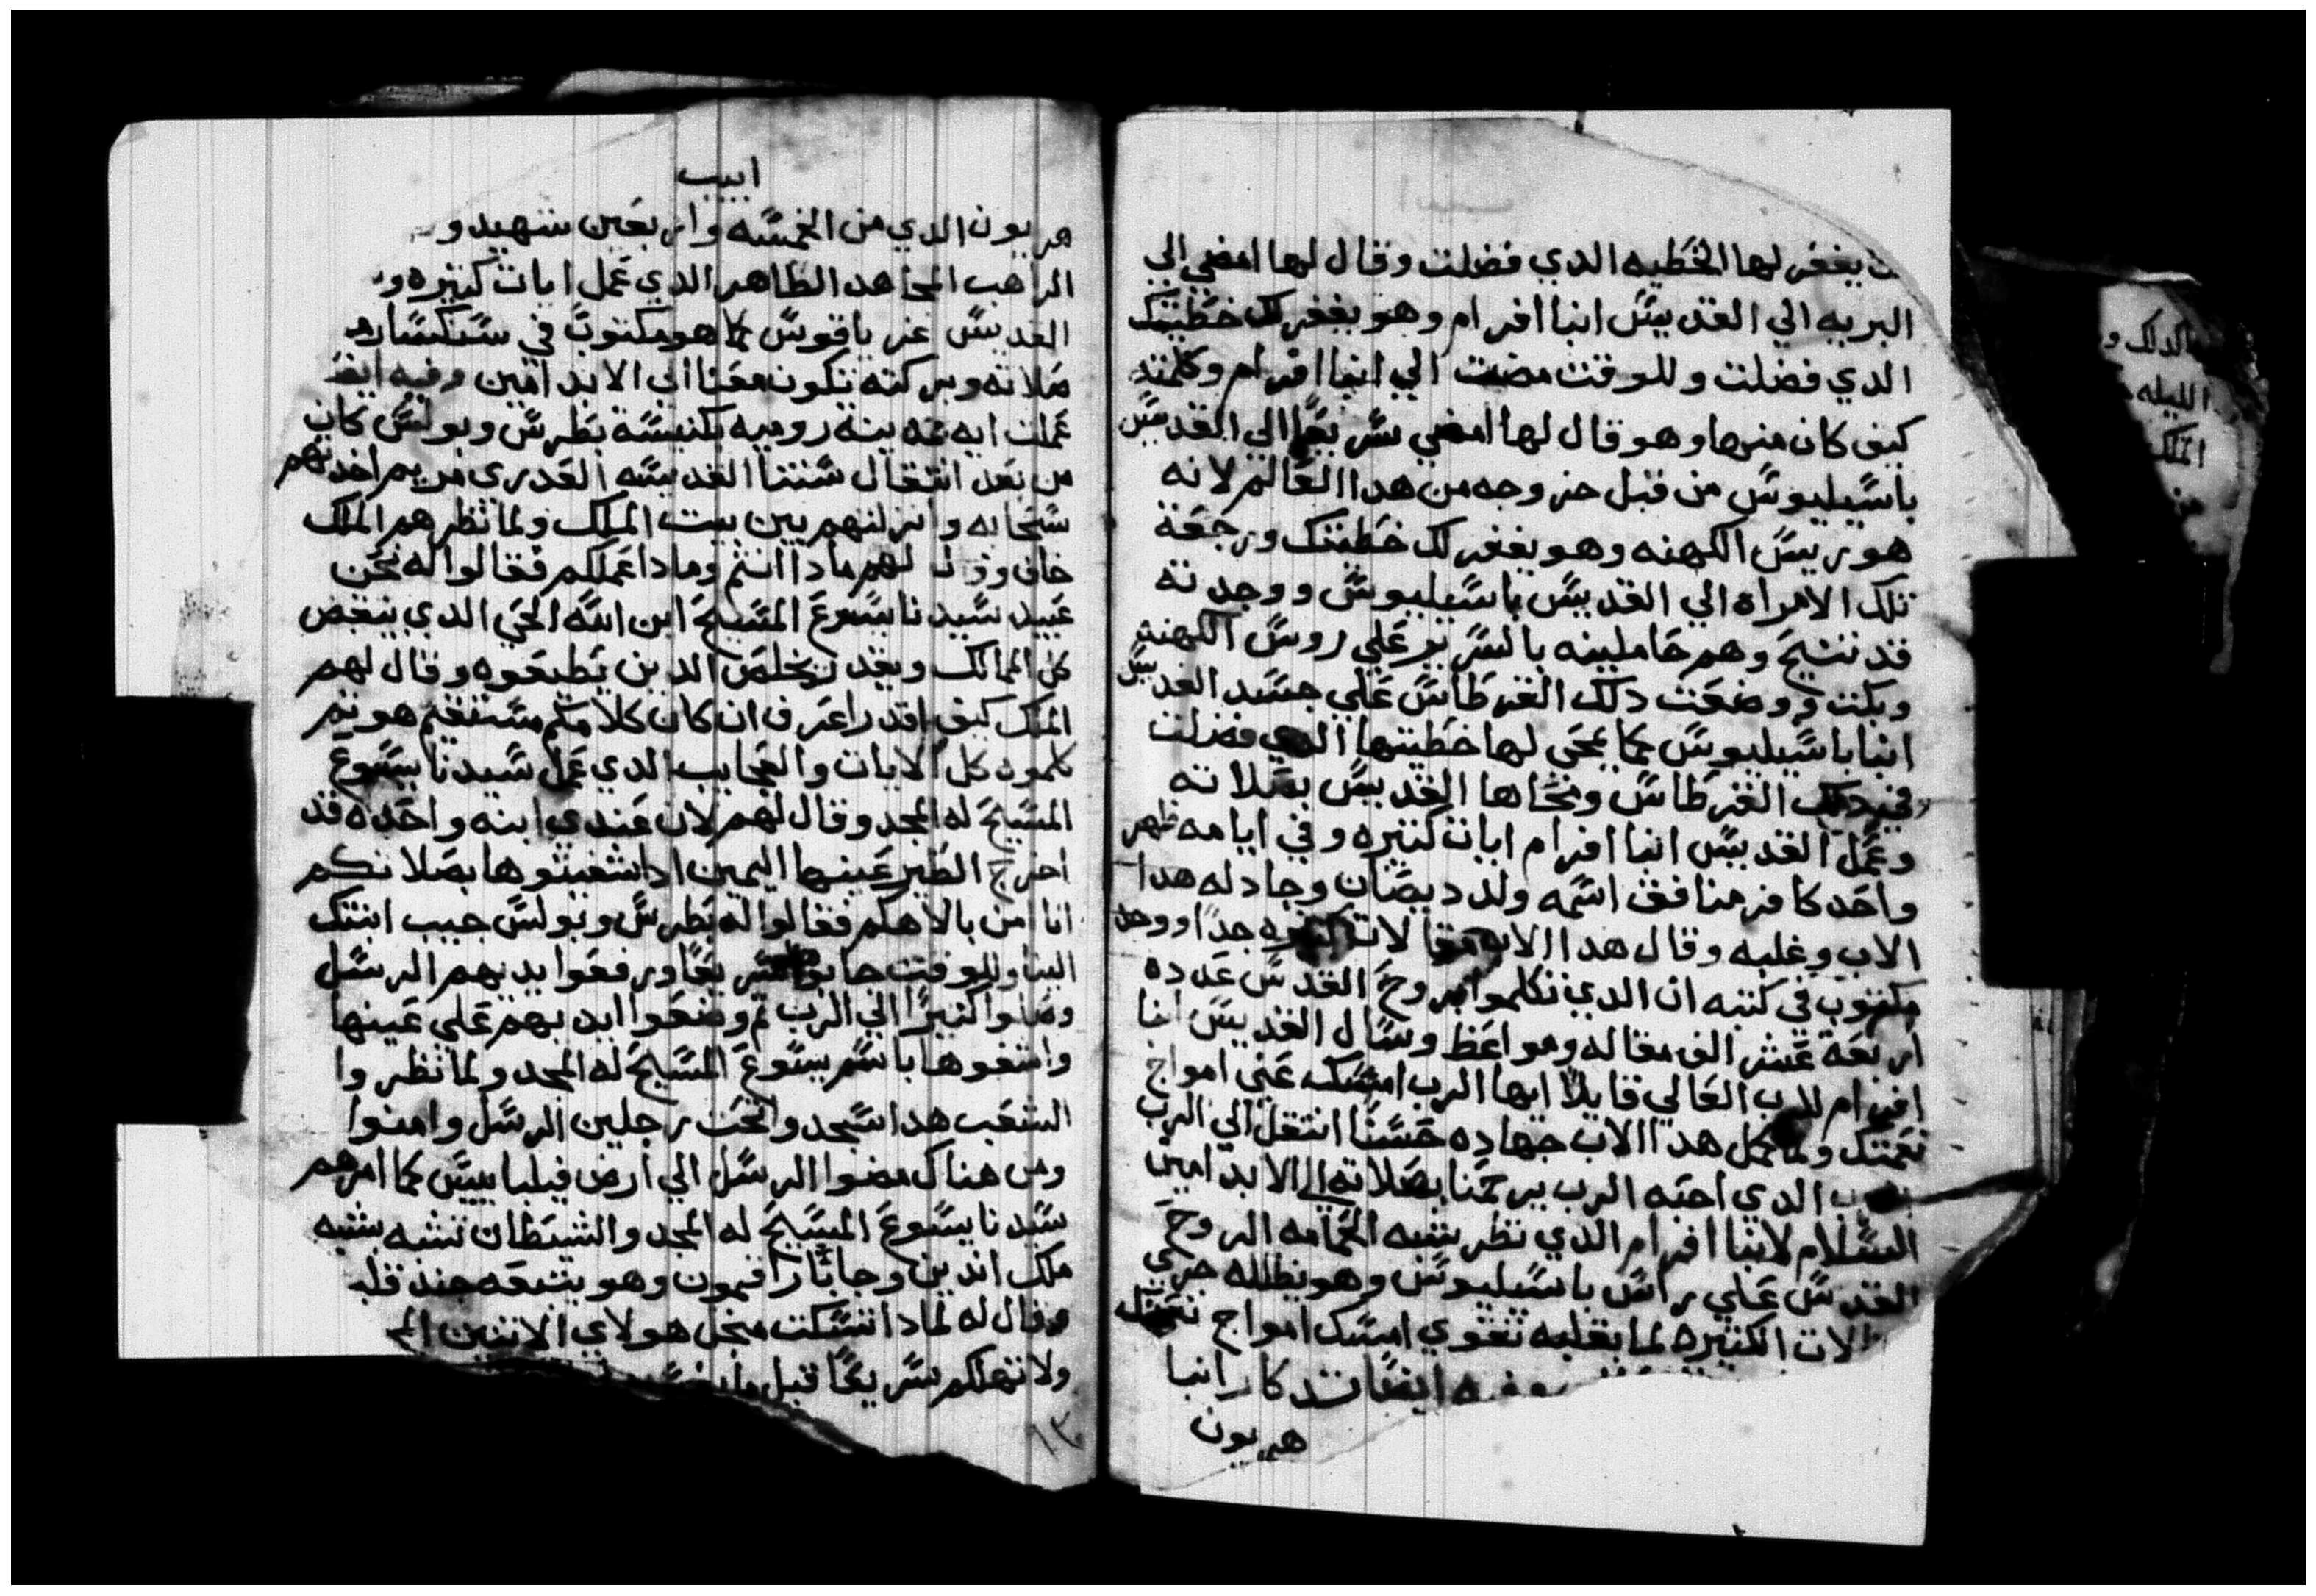 يغفر لها الخطيه الدي فضلت وقال لها امضي الي
البريه الي القديس انبا افرام وهو يغفر لك خطيتك
الدي فضلت وللوقت مضت الي انبا افرام وكلمته
كيف كان منها وهو قال لها امضي سريعًا الي القديس
باسيليوس من قبل خروجه من هدا العالم لانه
هو ريس الكهنه وهو يغفر لك خطيتك ورجعة
تلك الامراة الي القديس باسيليوس ووجدته
قد تنيح وهم حاملينه بالسرير علي روس الكهنه
وبكت ووضعت دلك القرطاس علي جسد القديس
انبا باسيليوس كما يمحي لها خطيتها الدي فضلت
في دلك القرطاس ومحاها القديس بصلاته
وعمل القديس انبا افرام ايات كتيره وفي ايامه ظهر
واحد كافر منافق اسمه ولد ديصان وجادله هدا
الاب وغلبه وقال هدا الاب مقالات كتيره جدًا ووجد
مكتوب في كتبه ان الدي تكلموا بروح القدس عدده
اربعة عشر الف مقاله ومواعظ وسال القديس انبا
افرام للرب العالي قايلاً ايها الرب امسك عني امواج
نعمتك ولما كمل هدا الاب جهاده حسنًا انتقل الي الرب
الدي احبه الرب يرحمنا بصلاته الي الابد امين
السلام لانبا افرام الدي نظر شبه الحمامه الروح
القدس علي راس باسيليوس وهو يظلله حري
لات الكتيره لما بقلبه تقوي امسك امواج نعمتك
ايضًا تدكار انبا
هريون
ابيب
هريون الدي من الخمسه واربعين شهيد و
الراهب المجاهد الطاهر الدي عمل ايات كتيره و
القديس غرياقوس كما هو مكتوب في سنكساره
صلاته وبركته تكون معنا الي الابد امين وفيه ايضًا
عملت ايه بمدينة روميه بكنيسة بطرس وبولس كان
من بعد انتقال ستنا القديسه العدري مريم اخدتهم
سحابه وانزلتهم بين بيت الملك ولما نظرهم الملك
خاف وقال لهم مادا انتم ومادا عملكم فقالوا له نحن
عبيد سيدنا يسوع المسيح ابن الله الحي الدي ينقض
كل الممالك ويقدر يخلص الدين يطيعوه وقال لهم
الملك كيف اقدر اعرف ان كان كلامكم مستقيم هو تم
كلموه كل الايات والعجايب الدي عمل سيدنا يسوع
المسيح له المجد وقال لهم لان عندي ابنه واحدة قد
اخرج الطير عينها اليمين ادا شفيتوها بصلاتكم
انا امن بالاهكم فقالوا له بطرس وبولس جيب ابنتك
الينا وللوقت جابوها سريعًا ورفعوا يديهم الرسل
وصلوا كتيرًا الي الرب تم وضعوا ايديهم علي عينها
واشفوها باسم يسوع المسيح له المجد ولما نظروا
الشعب هدا سجدوا تحت رجلين الرسل وامنوا
ومن هناك مضوا الرسل الي ارض فيلبا بييس كما امرهم
سيدنا يسوع المسيح له المجد والشيطان تشبه شبه
ملك اندين وجا بارافيمون وهو يتبعه جند قلـ
وقال له لمادا تسكت منجل هولاي الاتنين الم
ولا تهلكم سريعًا قبل
١٣
كدلك و
الليله
الملك